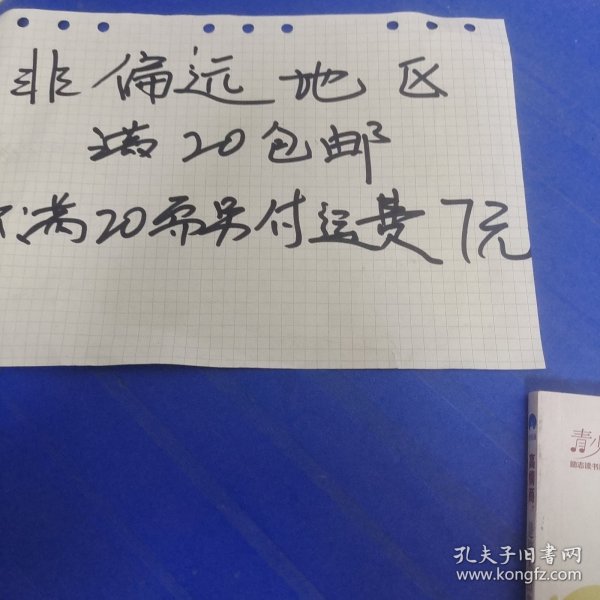 非偏远地区
满20包邮
不满20需另付运费7元
青少
励志读书
孔夫子旧书网
www.kongfz.com